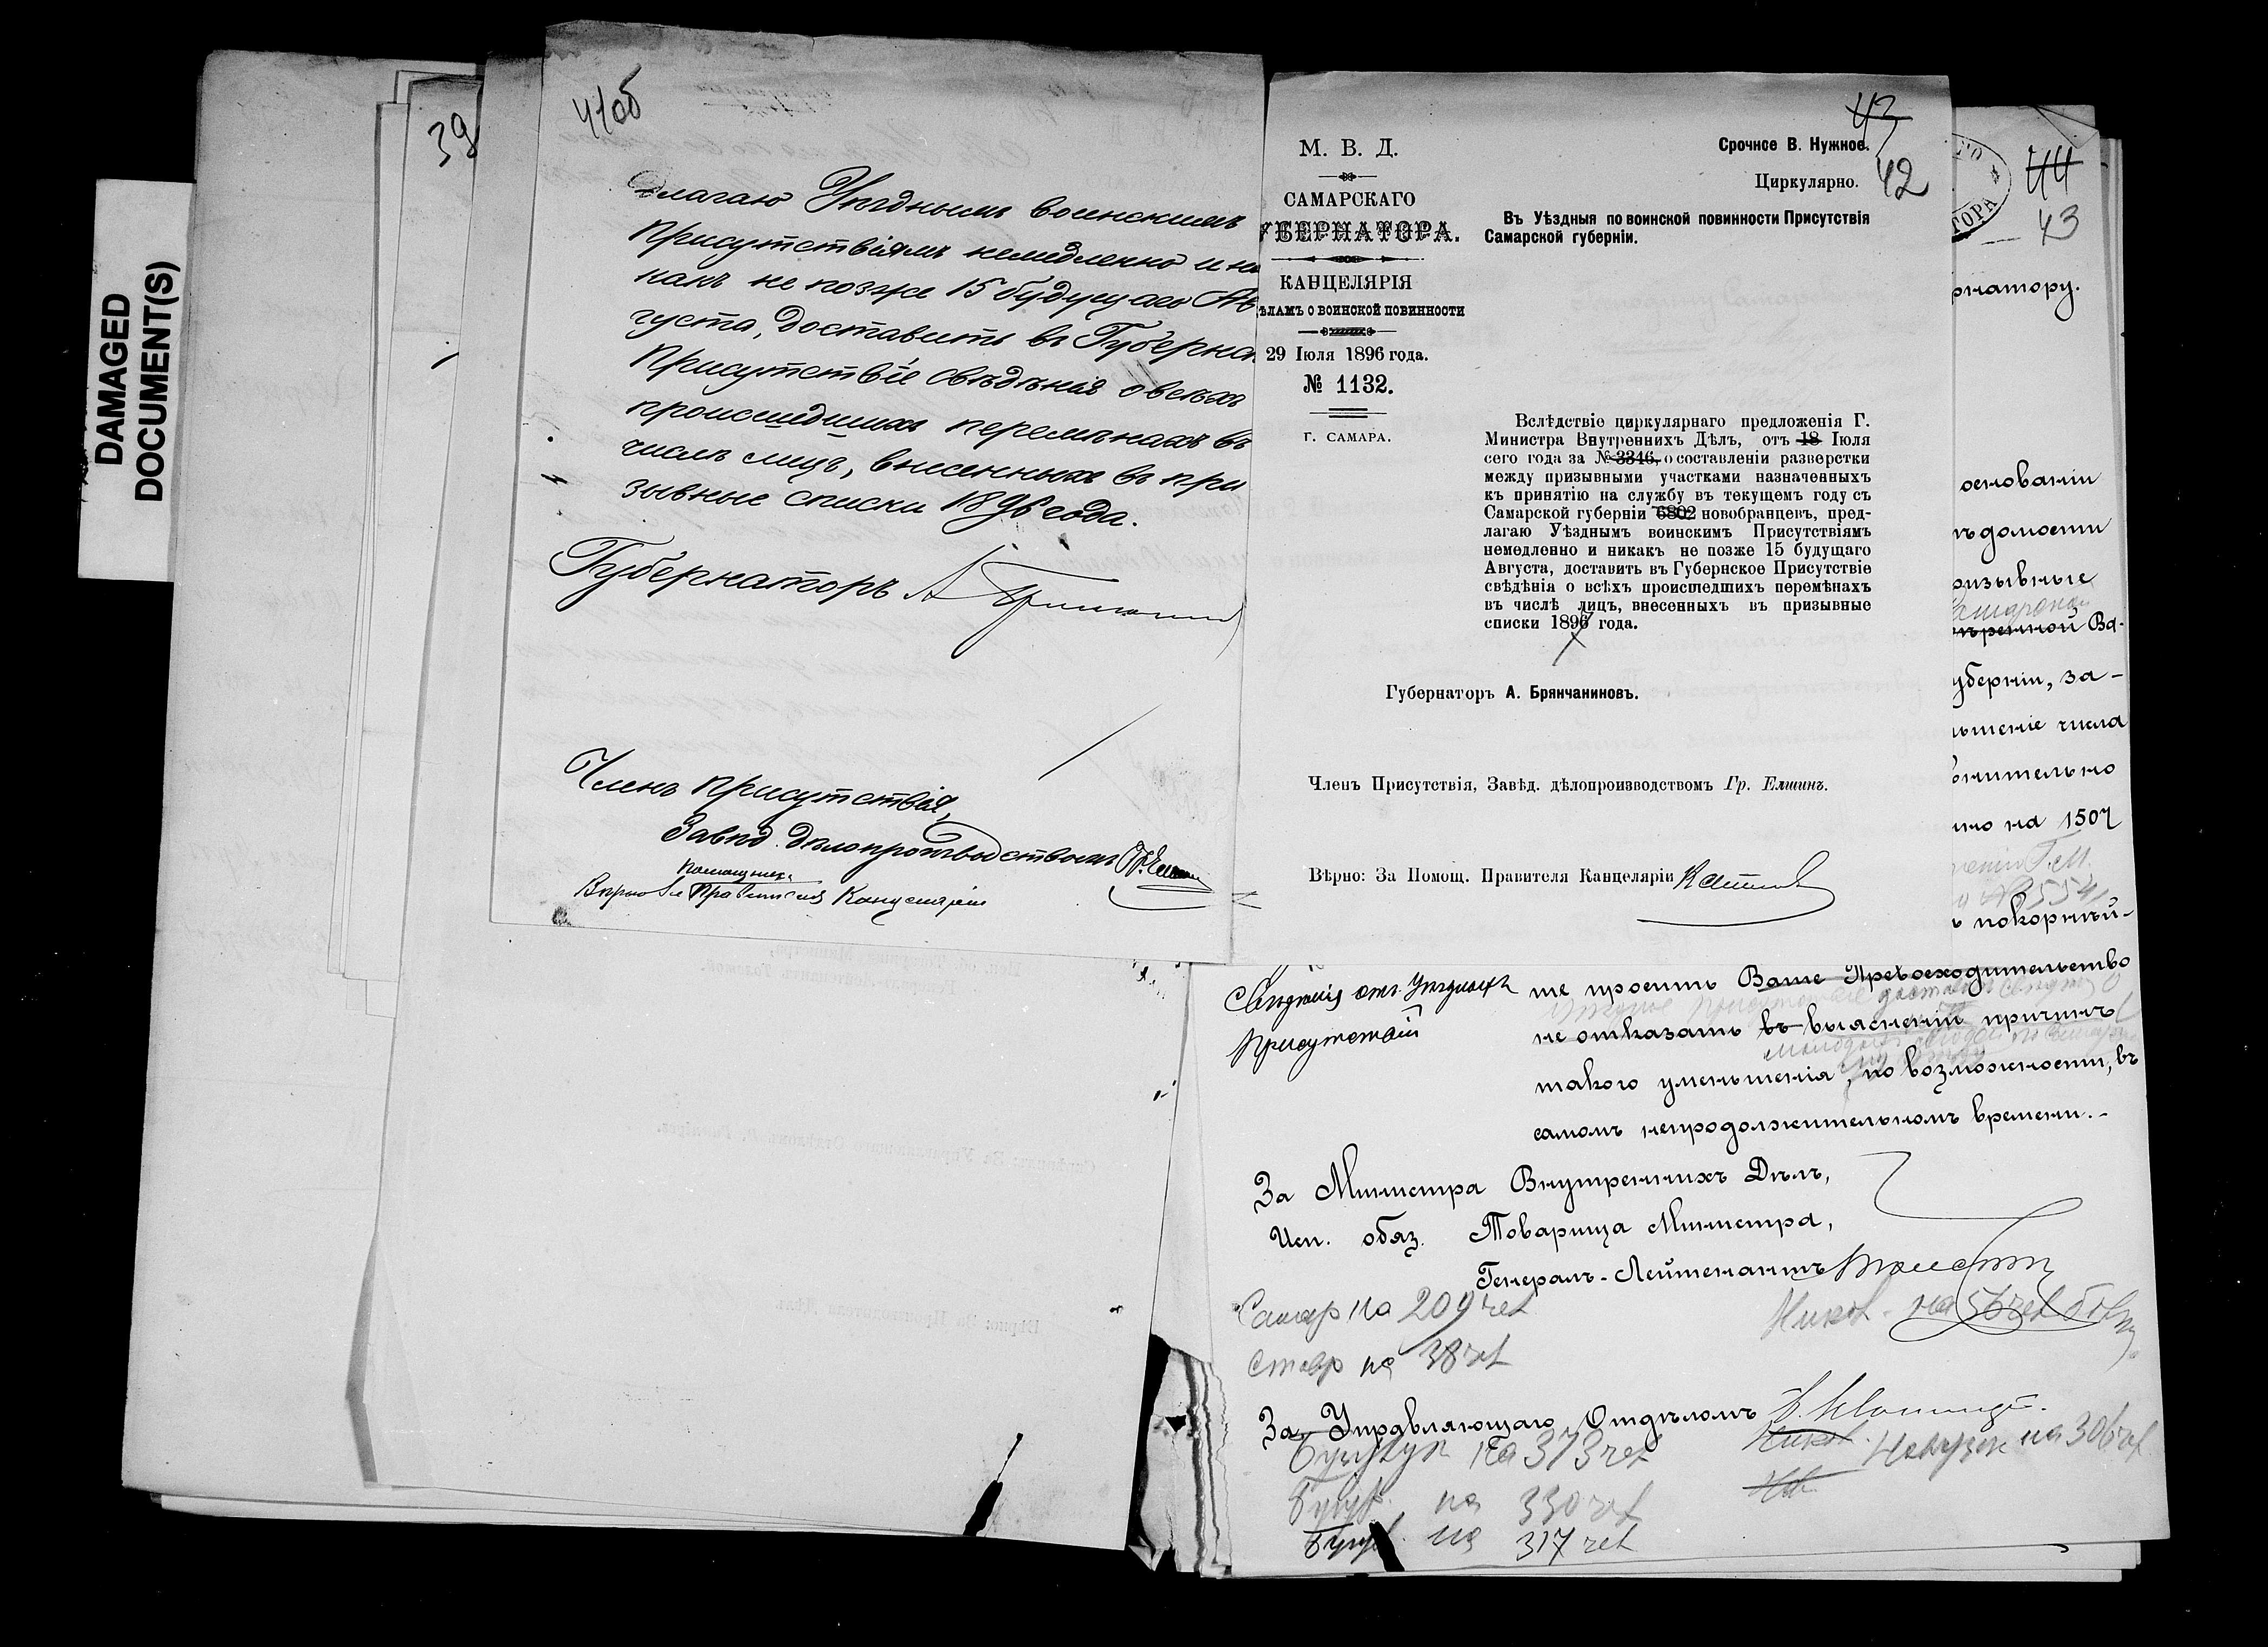 DAMAGED
DOCUMENT(S)
39
41об
длагаю Уѣзднымъ воинскимъ
Присутствіямъ немедленно и ни
какъ не позже 15 будущаго Ав
густа, доставить въ Губернс
Присутствіе свѣдѣнія о всѣхъ
происшедшихъ перемѣнахъ въ
числѣ лицъ, внесенныхъ въ при
зывные списки 1896 года.
Губернаторъ А Брянчанинов
Членъ Присутствія,
Завѣд. дѣлопроизводствомъ Гр. Елшин
Помощник
Вѣрно За Правителя Канцеляріи
М. В. Д.
САМАРСКАГО
ГУБЕРНАТОРА.
КАНЦЕЛЯРІЯ
ѢЛАМЪ О ВОИНСКОЙ ПОВИННОСТИ
29 Іюля 1896 года.
№ 1132.
Г. САМАРА.
43
Срочное В. Нужное.
Циркулярно.
42
Въ Уѣздныя по воинской повинности Присутствія
Самарской губерніи.
Вслѣдствіе циркулярнаго предложенія Г.
Министра Внутреннихъ Дѣлъ, отъ 18 Іюля
сего года за № 3346, о составленіи разверстки
между призывными участками назначенныхъ
къ принятію на службу въ текущемъ году съ
Самарской губерніи 6802 новобранцевъ, пред-
лагаю Уѣзднымъ воинскимъ Присутствіямъ
немедленно и никакъ не позже 15 будущаго
Августа, доставить въ Губернское Присутствіе
свѣдѣнія о всѣхъ происшедшихъ перемѣнахъ
въ числѣ лицъ, внесенныхъ въ призывные
списки 1896 года.
Губернаторъ А. Брянчаниновъ.
Членъ Присутствія, Завѣд. дѣлопроизводствомъ Гр. Елшинъ.
Вѣрно: За Помощ. Правителя Канцеляріи
44
43
ТОРА
рнатору.
основаніи
ѣдомости
ризывные
Самарской
ѣренной Ва-
уберніи, за-
ьшеніе числа
внительно
но на 1507
ъ покорнѣй-
Свѣдѣнія отъ Уѣздныхъ
Присутствій
ше просить Ваше Превосходительство
не отказать въ выясненіи причинъ
такого уменьшенія, по возможности, въ
самомъ непродолжительномъ времени.-
За Министра Внутреннихъ Дѣлъ,
Исп. обяз. Товарища Министра,
Генералъ-Лейтенантъ
Самар на 209 чел
Ставр на 38 чел
Никол. на 56 чел
За Управляющаго Отдѣломъ
Бузулук на 373 чел
Никол.
Новоузен на 306 чел
Бугур. на 330 чел
Бугул. на 317 чел